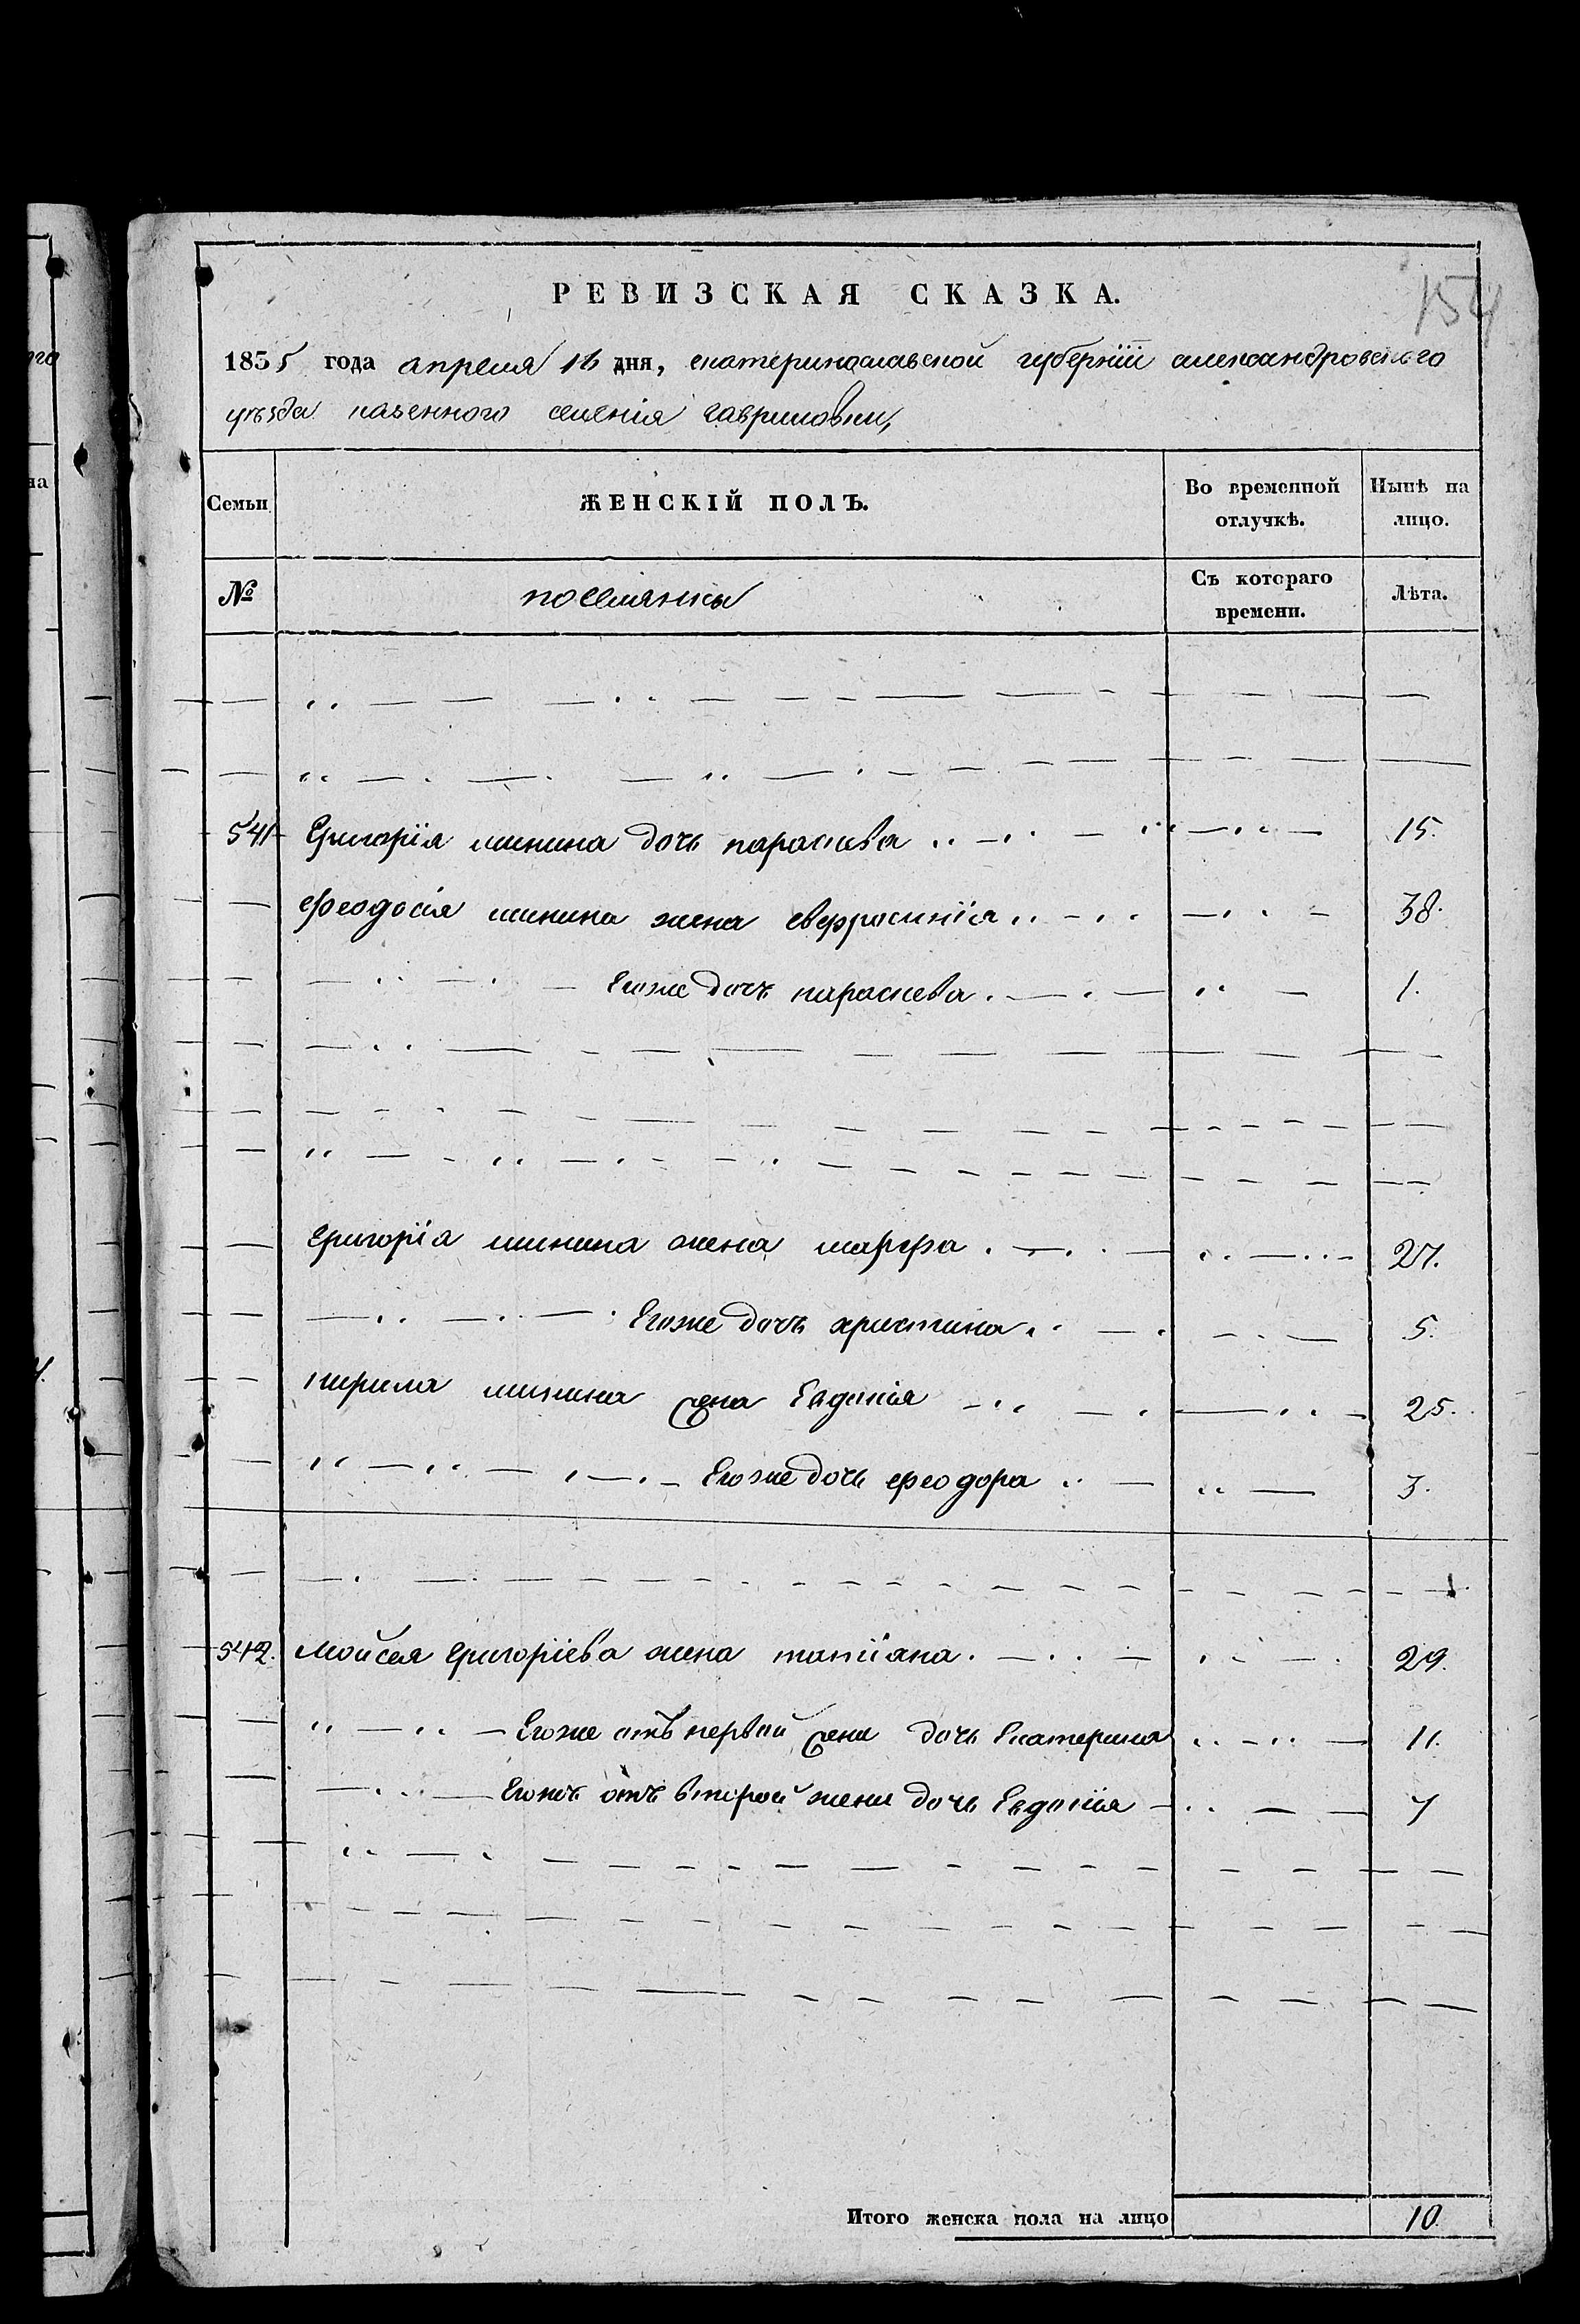 154
РЕВИЗСКАЯ СКАЗКА.
1835 года апреля 16 дня, екатеринославской губернїи александровского
уѣзда казенного селенія гавриловки,
Семьи
ЖЕНСКІЙ ПОЛЪ.
Во временной отлучкѣ.
Нынѣ на лицо.
№
поселянки
Съ котораго времени.
Лѣта.
541 Григорїя минина дочь параскева 15.
феодосія минина жена евфросинїя 38.
Егоже дочъ параскева 1.
григорїа минина жена марфа 27.
Егоже дочъ христина 5.
кирила минина жена Евдокія 25.
Егоже дочь феодора 3.
542. мойсея григорїева жена татїана 29.
Егоже отъ первой жени дочь Екатерина 11.
Егожъ отъ второй жени дочь Евдокїя 7
Итого женска пола на лицо 10.